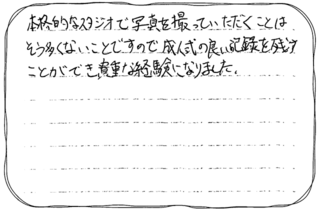 本格的なスタジオで写真を撮っていただくことは
そう多くないことですので成人式の良い記録を残す
ことができ貴重な経験になりました。